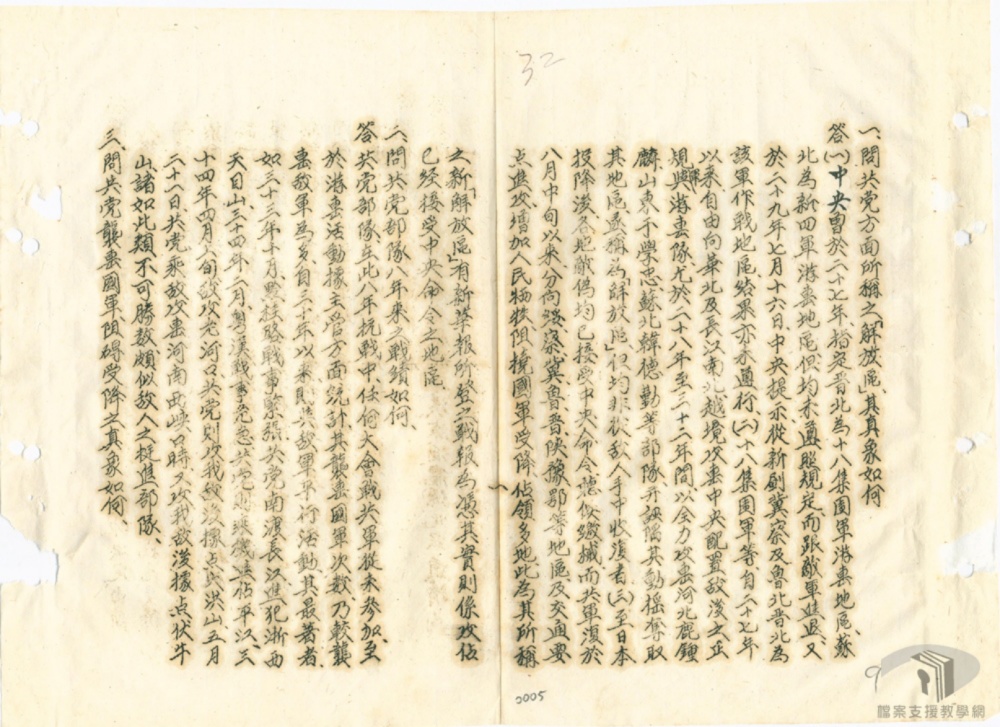 32
一、問共党方面所稱之「解放區」其真象如何
答(一)中央曾於二十七年指定晋北為十八集團軍游击地區、蘇
北為新四軍游击地區但均未遵照規定而跟敵軍進退、又
於二十九年七月十六日、中央提示從新劃冀察及魯北晋北為
該軍作戰地區終果亦未通行、(二)十八集團軍等自二十七年
以來自由向華北及長江南北越境攻击中央配置敌後之正
規與游击隊尤於二十八年至三十二年間以全力攻击河北鹿鍾
麟山東于學忠、蘇北韓德勤等部隊并誘惑其動搖奪取
其地區並稱為解放區、但均非從敌人手中收復者(三)至日本
投降後各地敵偽均已接受中央命令聽候繳械而共軍復於
八月中旬以來分向綏察冀魯晋陝豫鄂等地區及交通要
点進攻增加人民牺牲阻撓國軍受降佔領多地此為其所稱
之新「解放區」有新華報所登之戰報為憑其實則係攻佔
已经接受中央命令之地區
二、問共党部隊八年來之戰績如何、
答共党部隊在此八年抗戰中、任何大會戰共軍從未參加、至
於游击活動據主管方面統計其襲击國軍次數乃較襲
击敌軍為多、自三十年以來、則與敌軍平行活動其最著者
如三十三年十月黔桂路戰事緊張、共党南渡長江進犯浙西
天目山三十四年二月粤漢戰事危急共党
十四年四月下旬敌攻老河口共党則攻我後據点大洪山五月
二十一日共党乘敌攻击河南西峽口時又攻我敌後據点伏牛
山諸如此類不可勝数頗似敌人之挺進部隊、
三、問共党襲击國軍阻碍受降之真象如何、
0005
9
檔案支援教學網